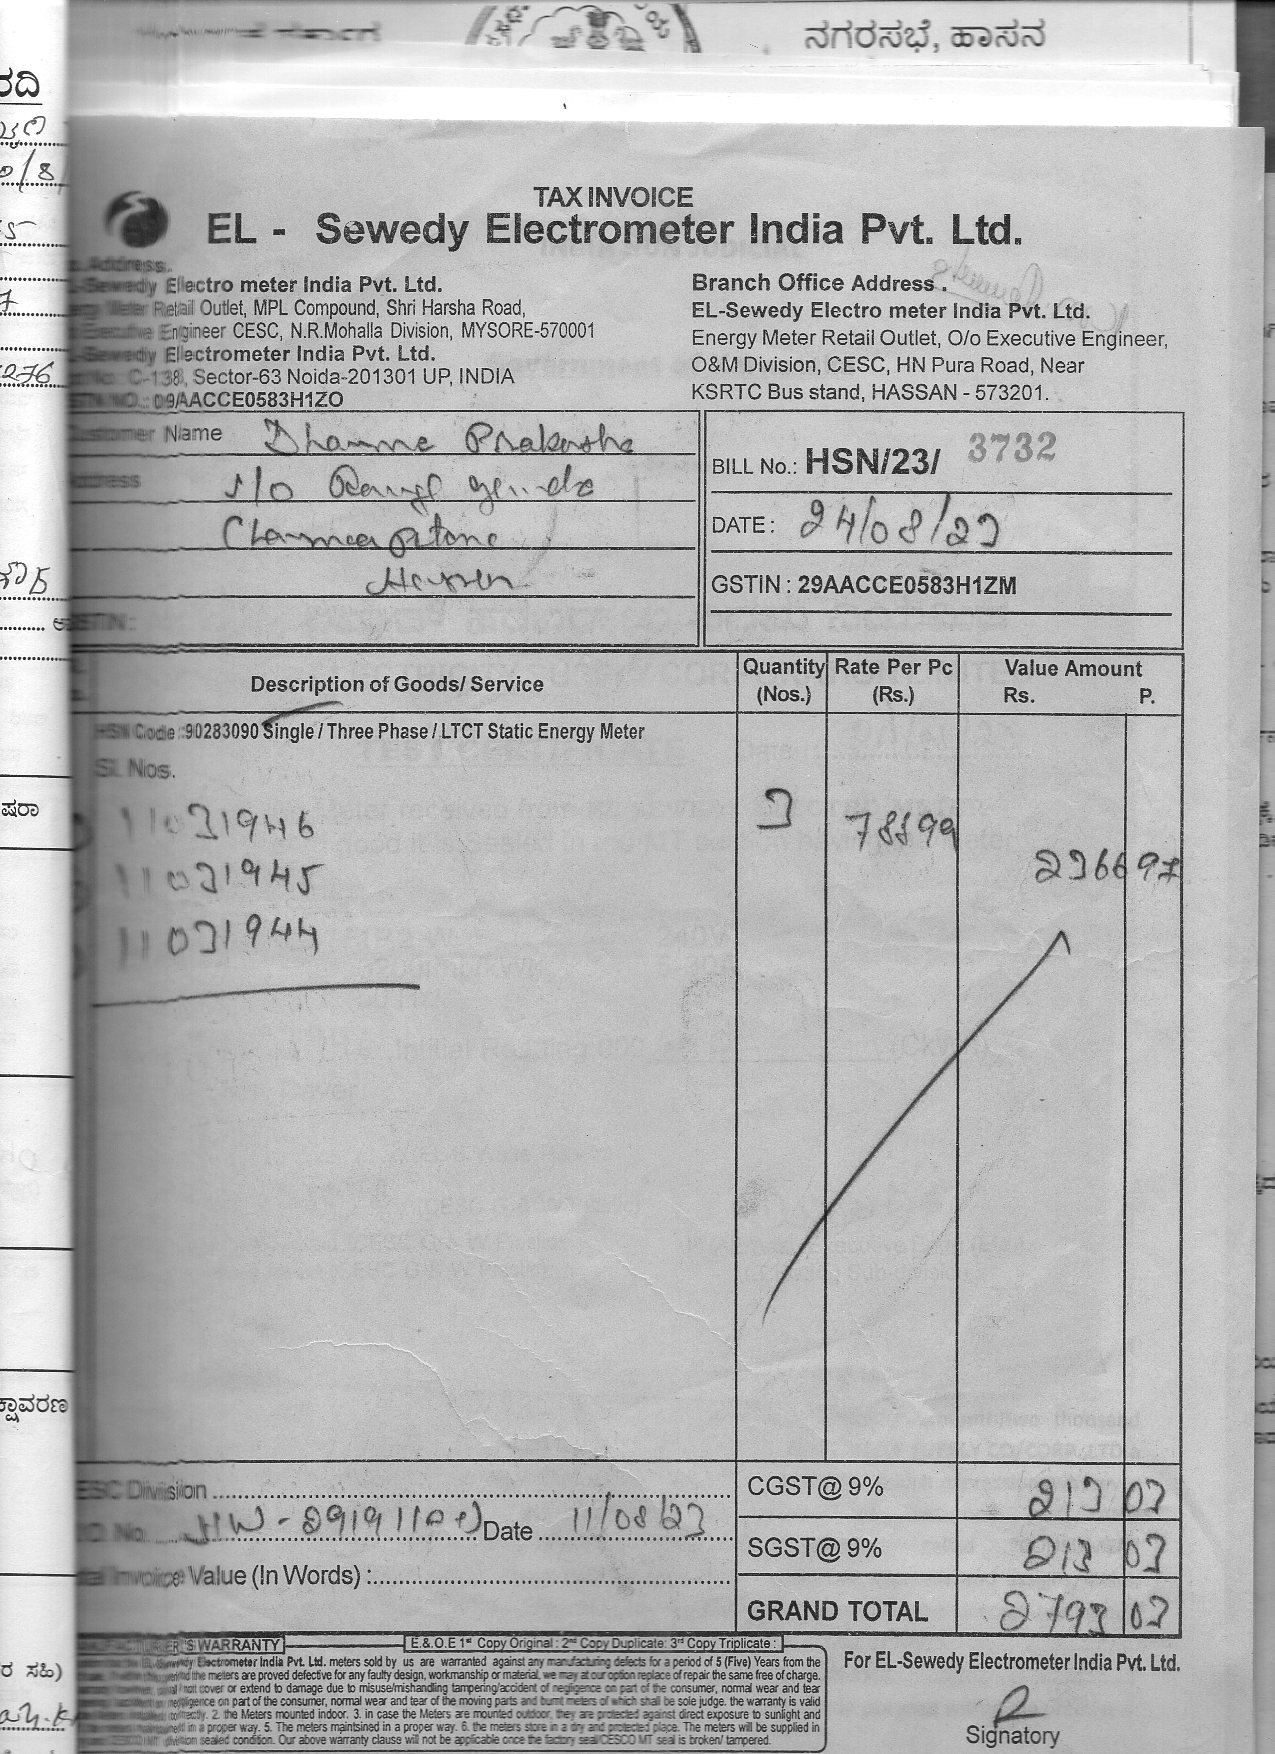 ನಗರಸಭೆ, ಹಾಸನ
TAX INVOICE
EL - Sewedy Electrometer India Pvt. Ltd.
Address.
Sewedy Electro meter India Pvt. Ltd.
Meter Retail Outlet, MPL Compound, Shri Harsha Road,
Executive Engineer CESC, N.R.Mohalla Division, MYSORE-570001
Sewedy Electrometer India Pvt. Ltd.
C-138, Sector-63 Noida-201301 UP, INDIA
09AACCE0583H1ZO
Branch Office Address .
EL-Sewedy Electro meter India Pvt. Ltd.
Energy Meter Retail Outlet, O/o Executive Engineer,
O&M Division, CESC, HN Pura Road, Near
KSRTC Bus stand, HASSAN - 573201.
Customer Name Dhamma Prakasha
Address s/o
Hassan
BILL No.: HSN/23/ 3732
DATE : 24/08/23
GSTIN : 29AACCE0583H1ZM
Description of Goods/ Service
Quantity (Nos.)
Rate Per Pc (Rs.)
Value Amount
Rs. P.
HSN Code :90283090 Single / Three Phase / LTCT Static Energy Meter
Sl. Nos.
11031946
11031945
11031944
3
78899
2366 97
CESC Division
Date 11/08/23
Invoice Value (In Words) :
CGST@ 9% 213 03
SGST@ 9% 213 03
GRAND TOTAL 2793 03
MANUFACTURER'S WARRANTY
E.& O.E 1st Copy Original : 2nd Copy Duplicate: 3rd Copy Triplicate :
Sewedy Electrometer India Pvt. Ltd. meters sold by us are warranted against any manufacturing defects for a period of 5 (Five) Years from the
the meters are proved defective for any faulty design, workmanship or material, we may at our option replace of repair the same free of charge.
not cover or extend to damage due to misuse/mishandling tampering/accident of negligence on part of the consumer, normal wear and tear
negligence on part of the consumer, normal wear and tear of the moving parts and burnt meters of which shall be sole judge. the warranty is valid
correctly. 2. the Meters mounted indoor. 3. in case the Meters are mounted outdoor, they are protected against direct exposure to sunlight and
in a proper way. 5. The meters maintsined in a proper way. 6. the meters store in a dry and protected place. The meters will be supplied in
sealed condition. Our above warranty clause will not be applicable once the factory seal/CESCO MT seal is broken/ tampered.
For EL-Sewedy Electrometer India Pvt. Ltd.
Signatory